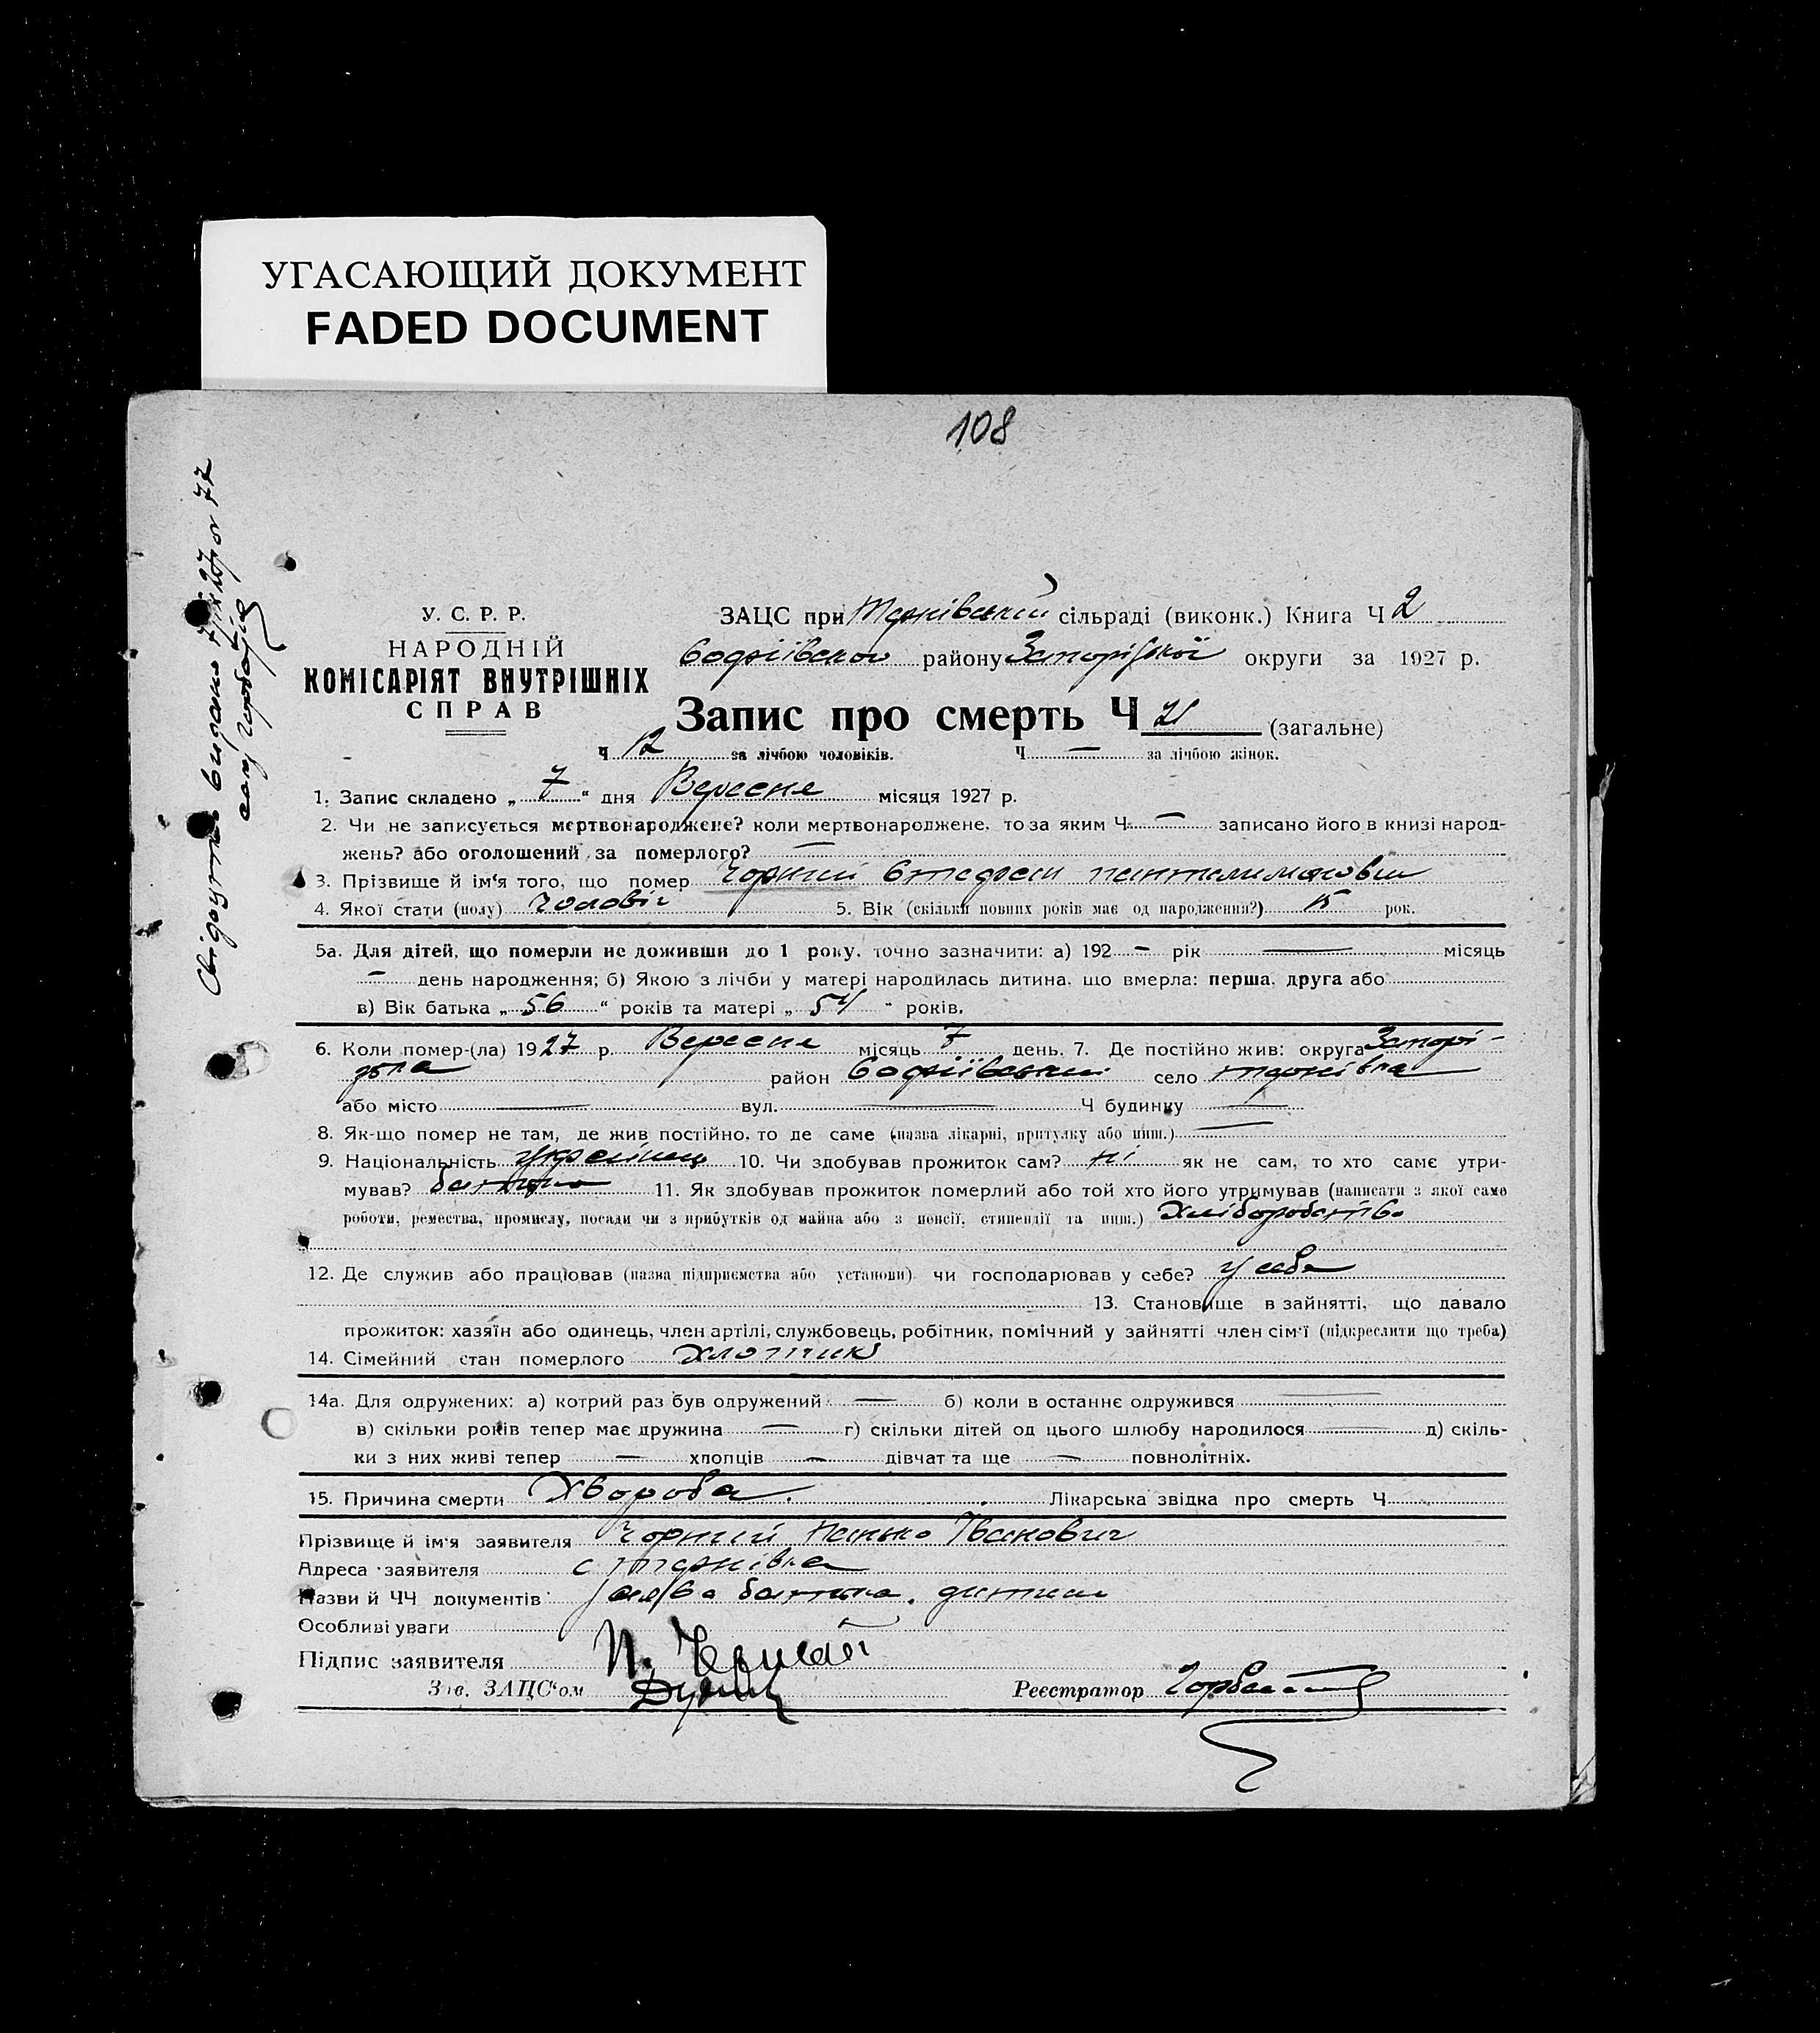 УГАСАЮЩИЙ ДОКУМЕНТ
FADED DOCUMENT
108
У. С. Р. Р.
НАРОДНІЙ
КОМІСАРІЯТ ВНУТРІШНІХ
СПРАВ
ЗАЦС при сільраді (виконк.) Книга Ч 2
району Запорізької округи за 1927 р.
Запис про смерть Ч 21 (загальне)
Ч 12 за лічбою чоловіків. Ч — за лічбою жінок.
1. Запис складено „ 7 “ дня Вересне місяця 1927 р.
2. Чи не записується мертвонароджене? коли мертвонароджене, то за яким Ч — записано його в книзі народ-
жень? або оголошений за померлого? —
3. Прізвище й ім‘я того, що помер Чорний
4. Якої стати (полу) Чоловіч 5. Вік (скільки повних років має од народження?) рок.
5а. Для дітей, що померли не доживши до 1 року, точно зазначити: а) 192 — рік — місяць
— день народження; б) Якою з лічби у матері народилась дитина, що вмерла: перша, друга або
в) Вік батька „ 56 “ років та матері „ 54 “ років.
6. Коли помер-(ла) 1927 р. Вересне місяць 7 день. 7. Де постійно жив: округа Запорі-
зька район село
або місто — вул. — Ч будинку —
8. Як-що помер не там, де жив постійно, то де саме (назва лікарні, притулку або инш.) —
9. Національність українець 10. Чи здобував прожиток сам? ні як не сам, то хто саме утри-
мував? батько 11. Як здобував прожиток померлий або той хто його утримував (написати з якої саме
роботи, ремества, промислу, посади чи з прибутків од майна або з пенсії, стипендії та инш.) Хліборобство
12. Де служив або працював (назва підприємства або установи) чи господарював у себе? у себе
13. Становище в зайнятті, що давало
прожиток: хазяїн або одинець, член артілі, службовець, робітник, помічний у зайнятті член сім‘ї (підкреслити що треба)
14. Сімейний стан померлого Хлопчик
14а. Для одружених: а) котрий раз був одружений — б) коли в останнє одружився —
в) скільки років тепер має дружина — г) скільки дітей од цього шлюбу народилося — д) скіль-
ки з них живі тепер — хлопців — дівчат та ще — повнолітніх.
15. Причина смерти Хвороба. Лікарська звідка про смерть Ч
Прізвище й ім‘я заявителя Чорний Панько Іванович
Адреса заявителя с
Назви й ЧЧ документів батька. дитини
Особливі уваги
Підпис заявителя П.
Зав. ЗАЦС‘ом Реєстратор
Свідоцтво видано